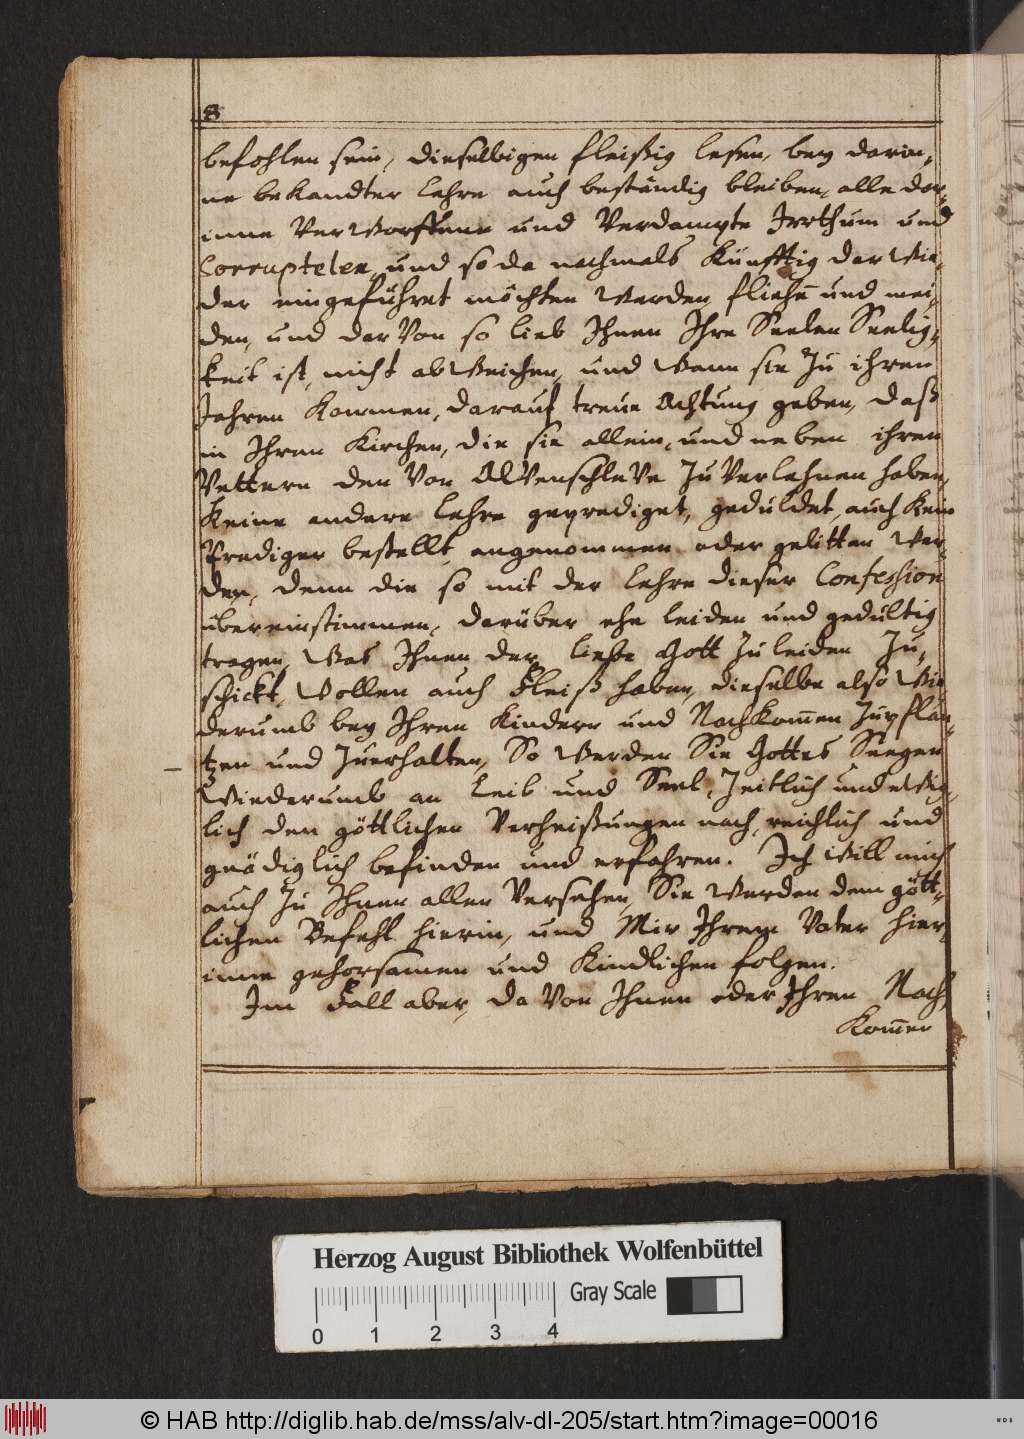 8
befohlen sein, dieselbigen fleißig lesen, bey darin,
ne bekandter lehre auch beständig bleiben, alle dar,
inne VerWorffene und Verdampte Irrthum und
Corruptelen, und so da nachmals Künfftig dar Wie,
der eingeführet möchten Werden, fliehen und mei,
den, und darVon so lieb Ihnen Ihre Seelen Seelig,
keit ist, nicht abWeichen, und Wann sie Zu ihren
Jahren Kommen, darauf treue Achtung geben, daß
in Ihren Kirchen, die sie allein, und neben ihren
Vettern den Von AlVenschleVe ZuVerlehnen haben,
Keine andere Lehre geprediget, geduldet, auch Kein
Prediger bestellt, angenommen oder gelitten Wer,
den, denn die so mit der lehre dieser Confession
übereinstimmen, darüber ehe leiden und gedültig
tragen, Was Ihnen der liebe Gott Zu leiden Zu,
schickt, Wollen auch Fleiß haben, dieselbe also Wie
derumb bey Ihren Kindern und Nachkom̄en Zupflan,
tzen und Zuerhalten, So Werden Sie Gottes Seegen
Wiederumb an Leib und Seel, Zeitlich und eWig,
lich den göttlichen Verheißungen nach, reichlich und
gnädiglich befinden und erfahren. Ich Will mich
auch Zu Ihnen allen Versehen, Sie Werden dem gött,
lichen Befehl hierin, und Mir Ihrem Vater hier,
inne gehorsamen und Kindlichen folgen.
Im Fall aber, da Von Ihnen oder Ihren Nach,
Kom̄en
Herzog August Bibliothek Wolfenbüttel
Gray Scale
0 1 2 3 4
© HAB http://diglib.hab.de/mss/alv-dl-205/start.htm?image=00016